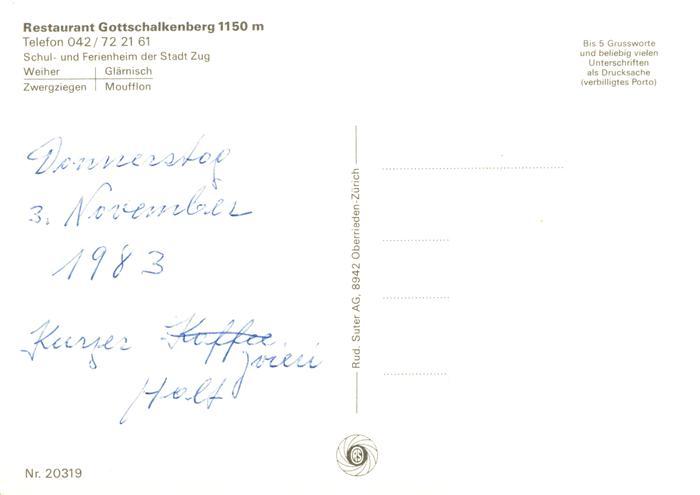 Restaurant Gottschalkenberg 1150 m
Telefon 042/72 21 61
Schul- und Ferienheim der Stadt Zug
Weiher | Glärnisch
Zwergziegen | Moufflon
Bis 5 Grussworte
und beliebig vielen
Unterschriften
als Drucksache
(verbilligtes Porto)
Donnerstag
3. November
1983
Kurzer Kaffee
zvieri
Halt
Rud. Suter AG, 8942 Oberrieden-Zürich
RS
Nr. 20319